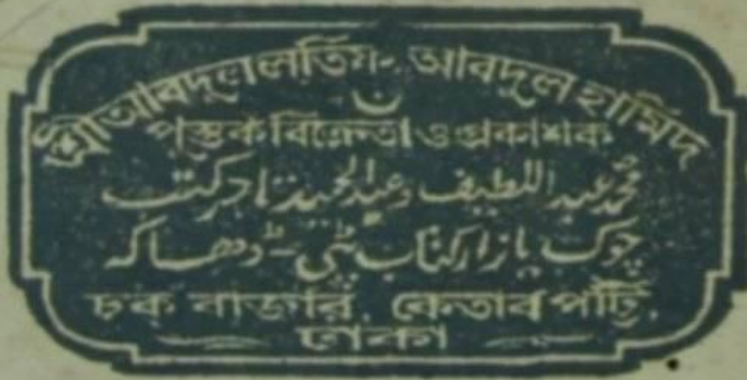 শ্রীআবদুল লতিফ, আবদুল হামিদ
পুস্তক বিক্রেতা ও প্রকাশক
محمد عبد اللطیف و عبد الحمید تاجر کتب
چوک بازار کتاب پٹی - ڈھاکہ
চক বাজার, কেতাব পট্টি,
ঢাকা